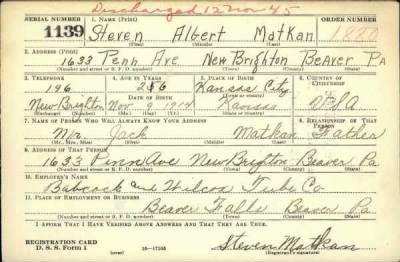 Discharged 12 Nov 45
SERIAL NUMBER 1. NAME (Print) ORDER NUMBER
1139 Steven Albert Matkan 1880
(First) (Middle) (Last)
2. ADDRESS (Print)
1633 Penn Ave New Brighton Beaver Pa
(Number and street or R. F. D. number) (Town) (County) (State)
3. TELEPHONE 4. AGE IN YEARS 5. PLACE OF BIRTH 6. COUNTRY OF CITIZENSHIP
196 26 Kansas City
DATE OF BIRTH
New Brighton Nov 9 1914 Kansas USA
(Exchange) (Number) (Mo.) (Day) (Yr.) (State or country)
7. NAME OF PERSON WHO WILL ALWAYS KNOW YOUR ADDRESS 8. RELATIONSHIP OF THAT PERSON
Mr. Jack Matkan Father
(Mr., Mrs., Miss) (First) (Middle) (Last)
9. ADDRESS OF THAT PERSON
1633 Penn Ave New Brighton Beaver Pa
(Number and street or R. F. D. number) (Town) (County) (State)
10. EMPLOYER'S NAME
Babcock and Wilcox Tube Co
11. PLACE OF EMPLOYMENT OR BUSINESS
Beaver Falls Beaver Pa
(Number and street or R. F. D. number) (Town) (County) (State)
I AFFIRM THAT I HAVE VERIFIED ABOVE ANSWERS AND THAT THEY ARE TRUE.
REGISTRATION CARD
D. S. S. Form 1 (over) 16—17105 Steven Matkan